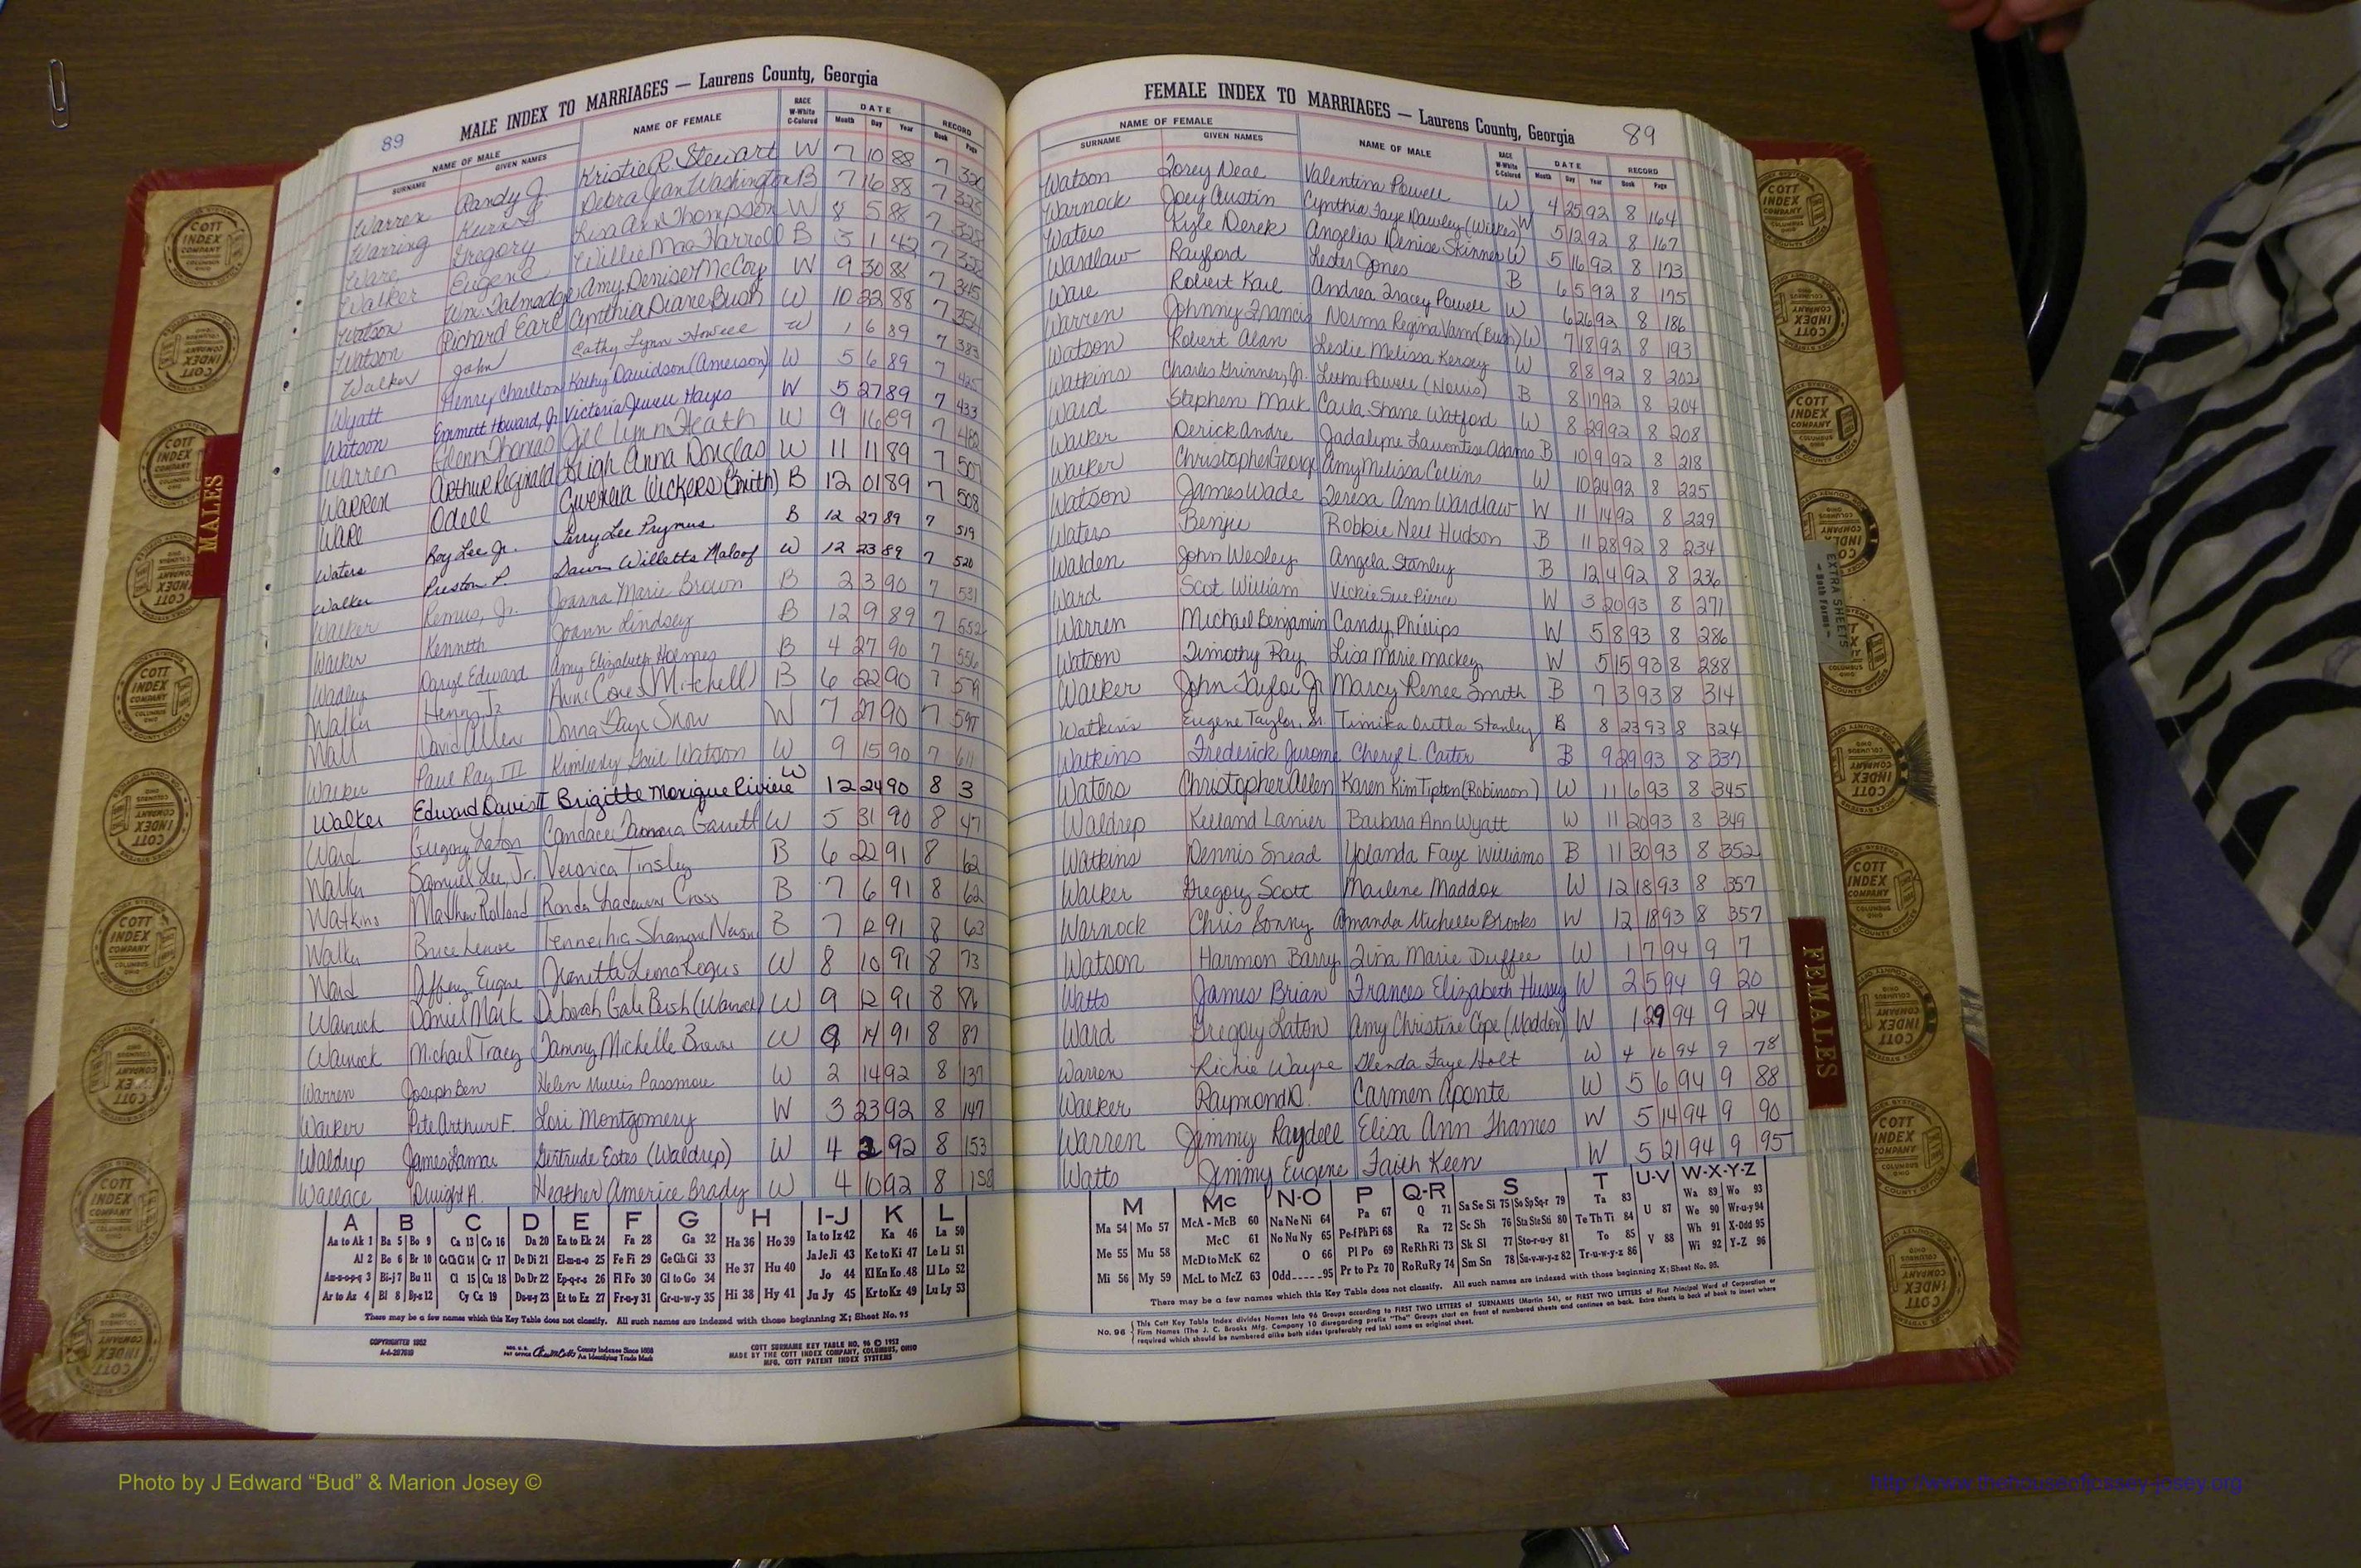 89
MALE INDEX TO MARRIAGES — Laurens County, Georgia
NAME OF MALE NAME OF FEMALE RACE W-White C-Colored DATE RECORD
SURNAME GIVEN NAMES Month Day Year Book Page
Warren Randy J. Kristie R. Stewart W 7 10 88 7 320
Warring Debra Jean Washington B 7 16 88 7 323
Ware Gregory Lisa Ann Thompson W 8 5 88 7 328
Walker Eugene Willie Mae Harroll B 3 1 42 7
Watson Wm. Talmadge Amy Denise McCoy W 9 30 88 7 345
Watson Richard Earl Cynthia Diane Bush W 10 22 88 7 354
Walker John Cathy Lynn Howell W 1 6 89 7 383
Wyatt Henry Charlton Kathy Davidson (Amerson) W 5 6 89 7 425
Watson Emmett Howard, Jr. Victoria Jewell Hayes W 5 27 89 7 433
Warren Glenn Thomas Jill Lynn Heath W 9 16 89 7 480
WARREN Arthur Reginald Leigh Anna Douglas W 11 11 89 7 507
WARE Odell Gueneva Vickers (Smith) B 12 01 89 7 508
Waters Roy Lee Jr. Terry Lee Prymus B 12 27 89 7 519
Walker Preston P. Dawn Willetts Maloof W 12 23 89 7 520
Walker Remus, Jr. Joanna Marie Brown B 2 3 90 7 531
Walker Kenneth Joann Lindsey B 12 9 89 7 552
Wadley Daryl Edward Amy Elizabeth Holmes B 4 27 90 7 556
Walker Henry Jr. Ann (Mitchell) B 6 22 90 7
Wall David Allen Donna Faye Snow W 7 27 90 7 597
Walker Paul Ray III Kimberly Gail Watson W 9 15 90 7 611
Walker Edward Davis II Brigitte Monique Riviere W 12 24 90 8 3
Ward Gregory Laton Candace Tamara Garrett W 5 31 90 8 47
Walker Samuel Lee, Jr. Veronica Tinsley B 6 22 91 8 62
Watkins Mathew Rolland Ronda Cross B 7 6 91 8 62
Walker Bruce B 7 12 91 8 63
Ward Jeffrey Eugene W 8 10 91 8 73
Warnock Daniel Mark Deborah Gale Bush (Warnock) W 9 12 91 8 86
Warnock Michael Tracy Tammy Michelle Brown W 9 14 91 8 87
Warren Joseph Ben Helen Mullis Passmore W 2 14 92 8 137
Walker Pete Arthur F. Lori Montgomery W 3 23 92 8 147
Waldrep James Lamar Gertrude Estes (Waldrep) W 4 2 92 8 153
Wallace Dwight A. Heather Americe Brady W 4 10 92 8 158
A B C D E F G H I-J K L
Aa to Ak 1 Ba 5 Bo 9 Ca 13 Co 16 Da 20 Ea to Ek 24 Fa 28 Ga 32 Ha 36 Ho 39 Ia to Iz 42 Ka 46 La 50
Al 2 Be 6 Br 10 Ce Ch Ci 14 Cr 17 De Di 21 El-m-n-o 25 Fe Fi 29 Ge Gh Gi 33 He 37 Hu 40 Ja Je Ji 43 Ke to Ki 47 Le Li 51
Am-n-o-p-q 3 Bi-j 7 Bu 11 Cl 15 Cu 18 Do Dr 22 Ep-q-r-s 26 Fl Fo 30 Gl to Go 34 Hi 38 Hy 41 Jo 44 Kl Kn Ko 48 Ll Lo 52
Ar to Az 4 Bl 8 By-z 12 Cy Cz 19 Du-w-y 23 Et to Ez 27 Fr-u-y 31 Gr-u-w-y 35 Ju Jy 45 Kr to Kz 49 Lu Ly 53
There may be a few names which this Key Table does not classify. All such names are indexed with those beginning X; Sheet No. 95
COPYRIGHTED 1952
A-A-207019
County Indexes Since 1888
An Identifying Trade Mark
COTT SURNAME KEY TABLE NO. 96 © 1952
MADE BY THE COTT INDEX COMPANY, COLUMBUS, OHIO
MFG. COTT PATENT INDEX SYSTEMS
FEMALE INDEX TO MARRIAGES — Laurens County, Georgia
89
NAME OF FEMALE NAME OF MALE RACE W-White C-Colored DATE RECORD
SURNAME GIVEN NAMES Month Day Year Book Page
Watson Torey Neal Valentina Powell W 4 25 92 8 164
Warnock Joey Austin Cynthia Faye Dawley (Wilkes) W 5 12 92 8 167
Waters Kyle Derek Angelia Denise Skinner W 5 16 92 8 173
Wardlaw Rayford Lester Jones B 6 5 92 8 175
Ware Robert Karl Andrea Tracey Powell W 6 26 92 8 186
Warren Johnny Francis Norma Regina Vann (Bush) W 7 18 92 8 193
Watson Robert Alan Leslie Melissa Kersey W 8 8 92 8 202
Watkins Charles Grinner, Jr. Letha Powell (Norris) B 8 17 92 8 204
Ward Stephen Mark Carla Shane Watford W 8 29 92 8 208
Walker Derick Andre Adams B 10 9 92 8 218
Walker Christopher George Amy Melissa Collins W 10 24 92 8 225
Watson James Wade Teresa Ann Wardlaw W 11 14 92 8 229
Waters Benjie Robbie Nell Hudson B 11 28 92 8 234
Walden John Wesley Angela Stanley B 12 4 92 8 236
Ward Scot William Vickie Sue Pierce W 3 20 93 8 271
Warren Michael Benjamin Candy Phillips W 5 8 93 8 286
Watson Timothy Ray Lisa Marie Mackey W 5 15 93 8 288
Walker John Taylor Jr. Marcy Renee Smith B 7 3 93 8 314
Watkins Eugene Taylor, Sr. Timika Stanley B 8 23 93 8 324
Watkins Frederick Jerome Cheryl L. Carter B 9 29 93 8 337
Waters Christopher Allen Karen Kim Tipton (Robinson) W 11 6 93 8 345
Waldrep Kelland Lanier Barbara Ann Wyatt W 11 20 93 8 349
Watkins Dennis Snead Yolanda Faye Williams B 11 30 93 8 352
Walker Gregory Scott Marlene Maddox W 12 18 93 8 357
Warnock Chris Sonny Amanda Michelle Brooks W 12 18 93 8 357
Watson Harmon Barry Tina Marie Duffee W 1 7 94 9 7
Watts James Brian Frances Elizabeth Hussey W 2 5 94 9 20
Ward Gregory Laton Amy Christine Cope (Maddox) W 1 29 94 9 24
Warren Richie Wayne Glenda Faye Holt W 4 16 94 9 78
Walker Raymond D. Carmen Aponte W 5 6 94 9 88
Warren Jimmy Raydell Elisa Ann Thames W 5 14 94 9 90
Watts Jimmy Eugene Faith Keen W 5 21 94 9 95
M Mc N-O P Q-R S T U-V W-X-Y-Z
Ma 54 Mo 57 McA - McB 60 Na Ne Ni 64 Pa 67 Q 71 Sa Se Si 75 So Sp Sq-r 79 Ta 83 U 87 Wa 89 Wo 93
Me 55 Mu 58 McC 61 No Nu Ny 65 Pe-f Ph Pi 68 Ra 72 Sc Sh 76 Sta Ste Sti 80 Te Th Ti 84 V 88 We 90 Wr-u-y 94
Mi 56 My 59 McD to McK 62 O 66 Pl Po 69 Re Rh Ri 73 Sk Sl 77 Sto-r-u-y 81 To 85 Wh 91 X-Odd 95
McL to McZ 63 Odd-----95 Pr to Pz 70 Ro Ru Ry 74 Sm Sn 78 Su-v-w-y-z 82 Tr-u-w-y-z 86 Wi 92 Y-Z 96
There may be a few names which this Key Table does not classify. All such names are indexed with those beginning X; Sheet No. 95.
No. 96 This Cott Key Table Index divides Names into 96 Groups according to FIRST TWO LETTERS of SURNAMES (Martin 54), or FIRST TWO LETTERS of First Principal Word of Corporation or
Firm Names (The J. C. Brooks Mfg. Company 10 disregarding prefix "The" Groups start on front of numbered sheets and continue on back. Extra sheets in back of book to insert where
required which should be numbered alike both sides (preferably red ink) same as original sheet.
MALES
FEMALES
EXTRA SHEETS
— Both Forms —
COTT INDEX COMPANY
COLUMBUS OHIO
INDEX SYSTEMS
FOR COUNTY OFFICES
Photo by J Edward “Bud” & Marion Josey ©
http://www.thehouseofjossey-josey.org